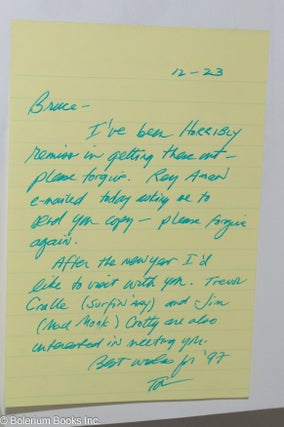 12-23
Bruce-
I've been HORRIBLY
remiss in getting these out -
please forgive. Ray
e-mailed today asking me to
send you copy - please forgive
again.
After the new year I'd
like to visit with you. Trevor
Cralle (surfin'ary) and Jim
(Mad Monk) Crotty are also
interested in meeting you.
Best wishes for '97
© Bolerium Books Inc.